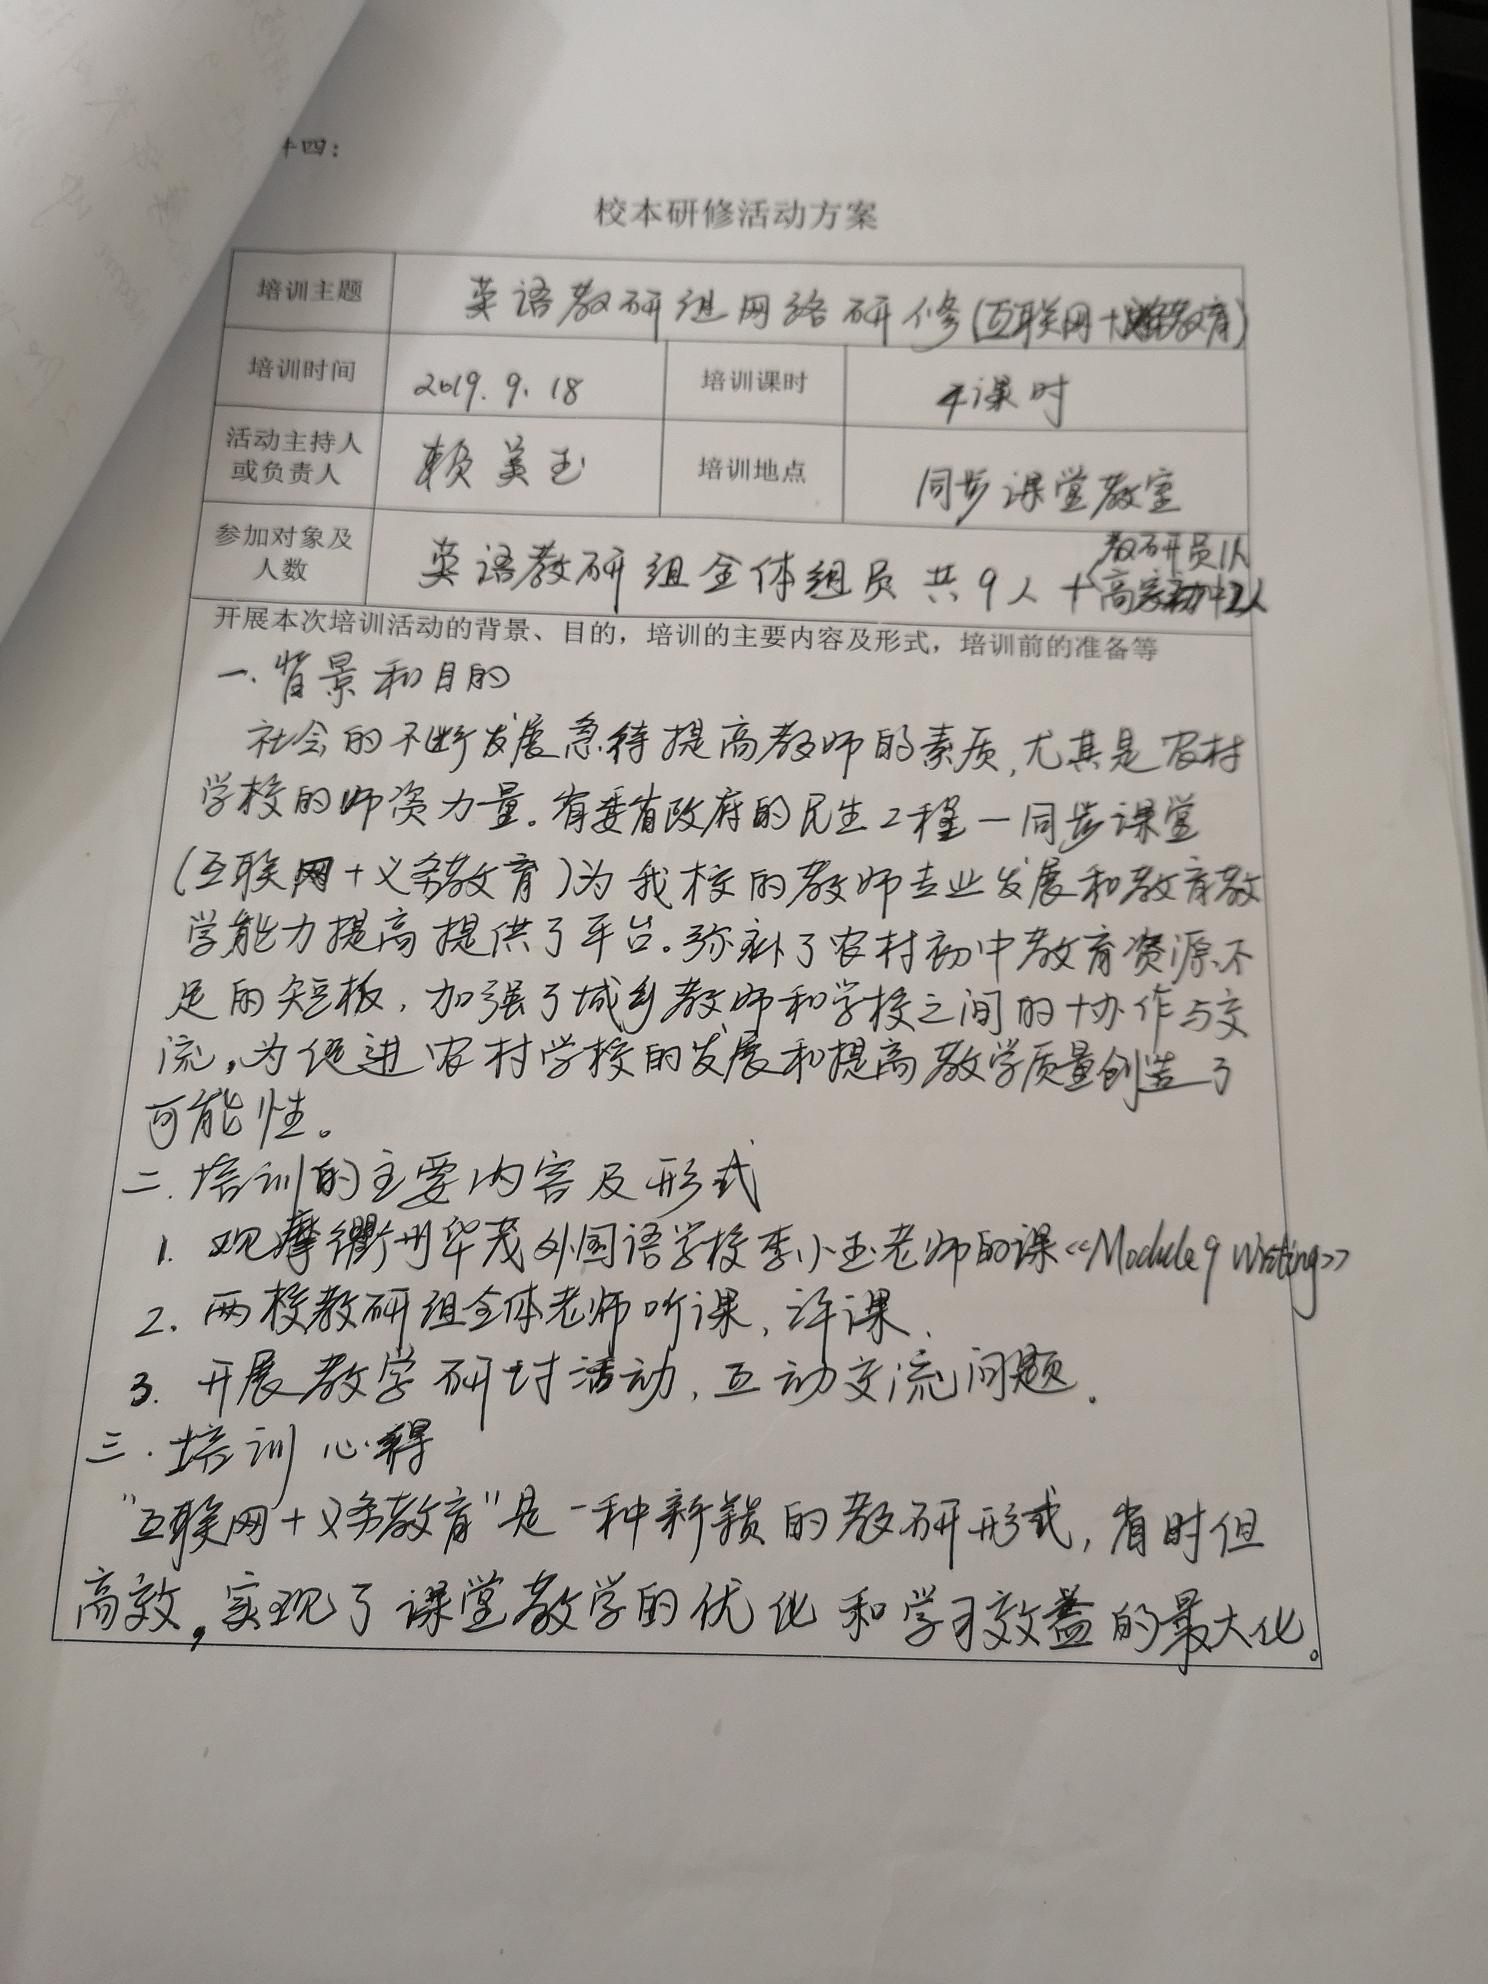 件四：
校本研修活动方案
培训主题 英语教研组网络研修(互联网+义务教育)
培训时间 2019.9.18 培训课时 4课时
活动主持人
或负责人 赖美玉 培训地点 同步课堂教室
参加对象及
人数 英语教研组全体组员共9人+教研员1人
高家初中2人
开展本次培训活动的背景、目的，培训的主要内容及形式，培训前的准备等
一.背景和目的
社会的不断发展急待提高教师的素质,尤其是农村
学校的师资力量。省委省政府的民生工程—同步课堂
(互联网+义务教育)为我校的教师专业发展和教育教
学能力提高提供了平台。弥补了农村初中教育资源不
足的短板,加强了城乡教师和学校之间的协作与交
流,为促进农村学校的发展和提高教学质量创造了
可能性。
二.培训的主要内容及形式
1. 观摩衢州华茂外国语学校李小玉老师的课《Module 9 Writing》
2. 两校教研组全体老师听课,评课.
3. 开展教学研讨活动,互动交流问题.
三.培训心得
"互联网+义务教育"是一种新颖的教研形式,省时但
高效,实现了课堂教学的优化和学习效益的最大化。